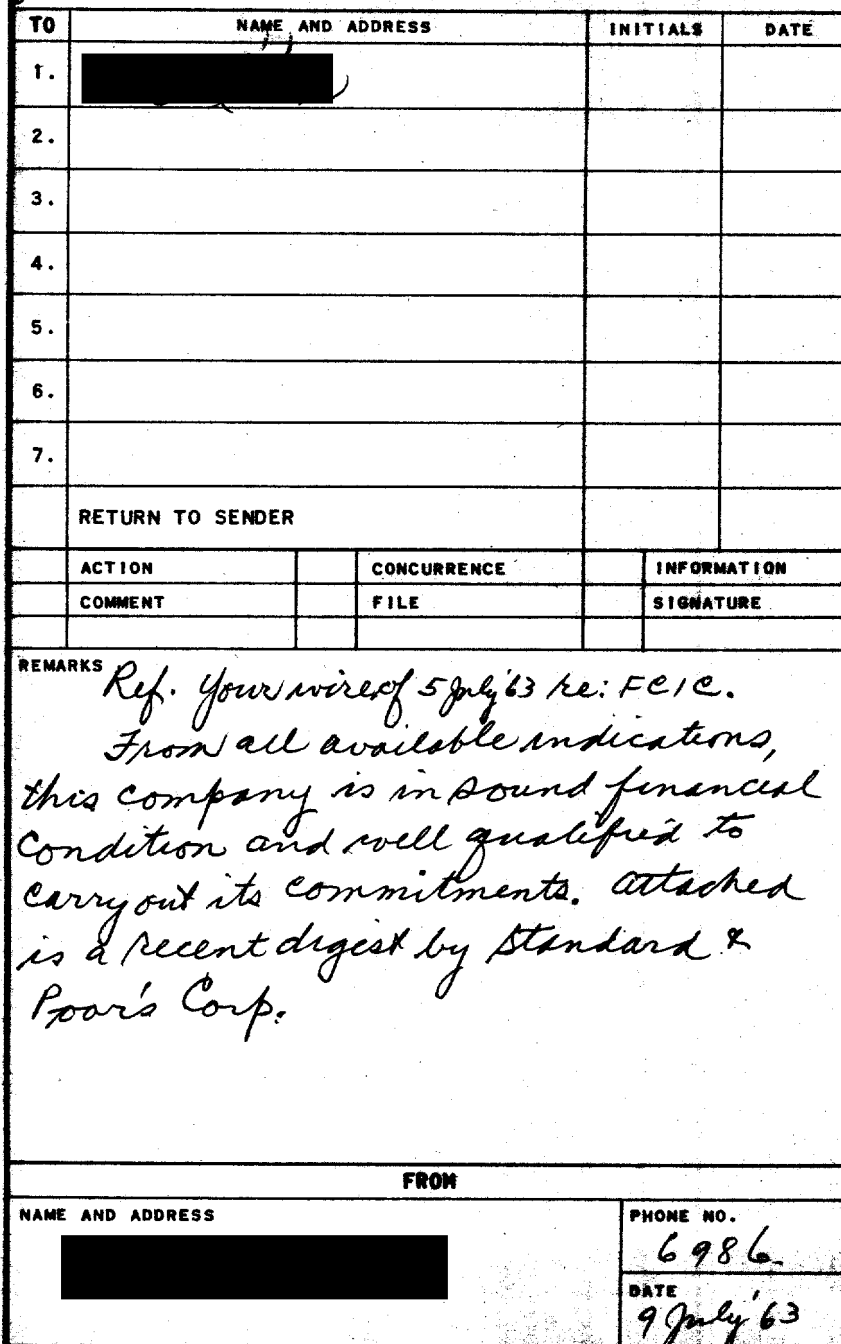 TO NAME AND ADDRESS INITIALS DATE
1.
2.
3.
4.
5.
6.
7.
RETURN TO SENDER
ACTION CONCURRENCE INFORMATION
COMMENT FILE SIGNATURE
REMARKS
Ref. Your wire of 5 July '63 re: FCIC.
From all available indications,
this company is in sound financial
condition and well qualified to
carry out its commitments. Attached
is a recent digest by Standard &
Poor's Corp.
FROM
NAME AND ADDRESS PHONE NO.
6986
DATE
9 July '63